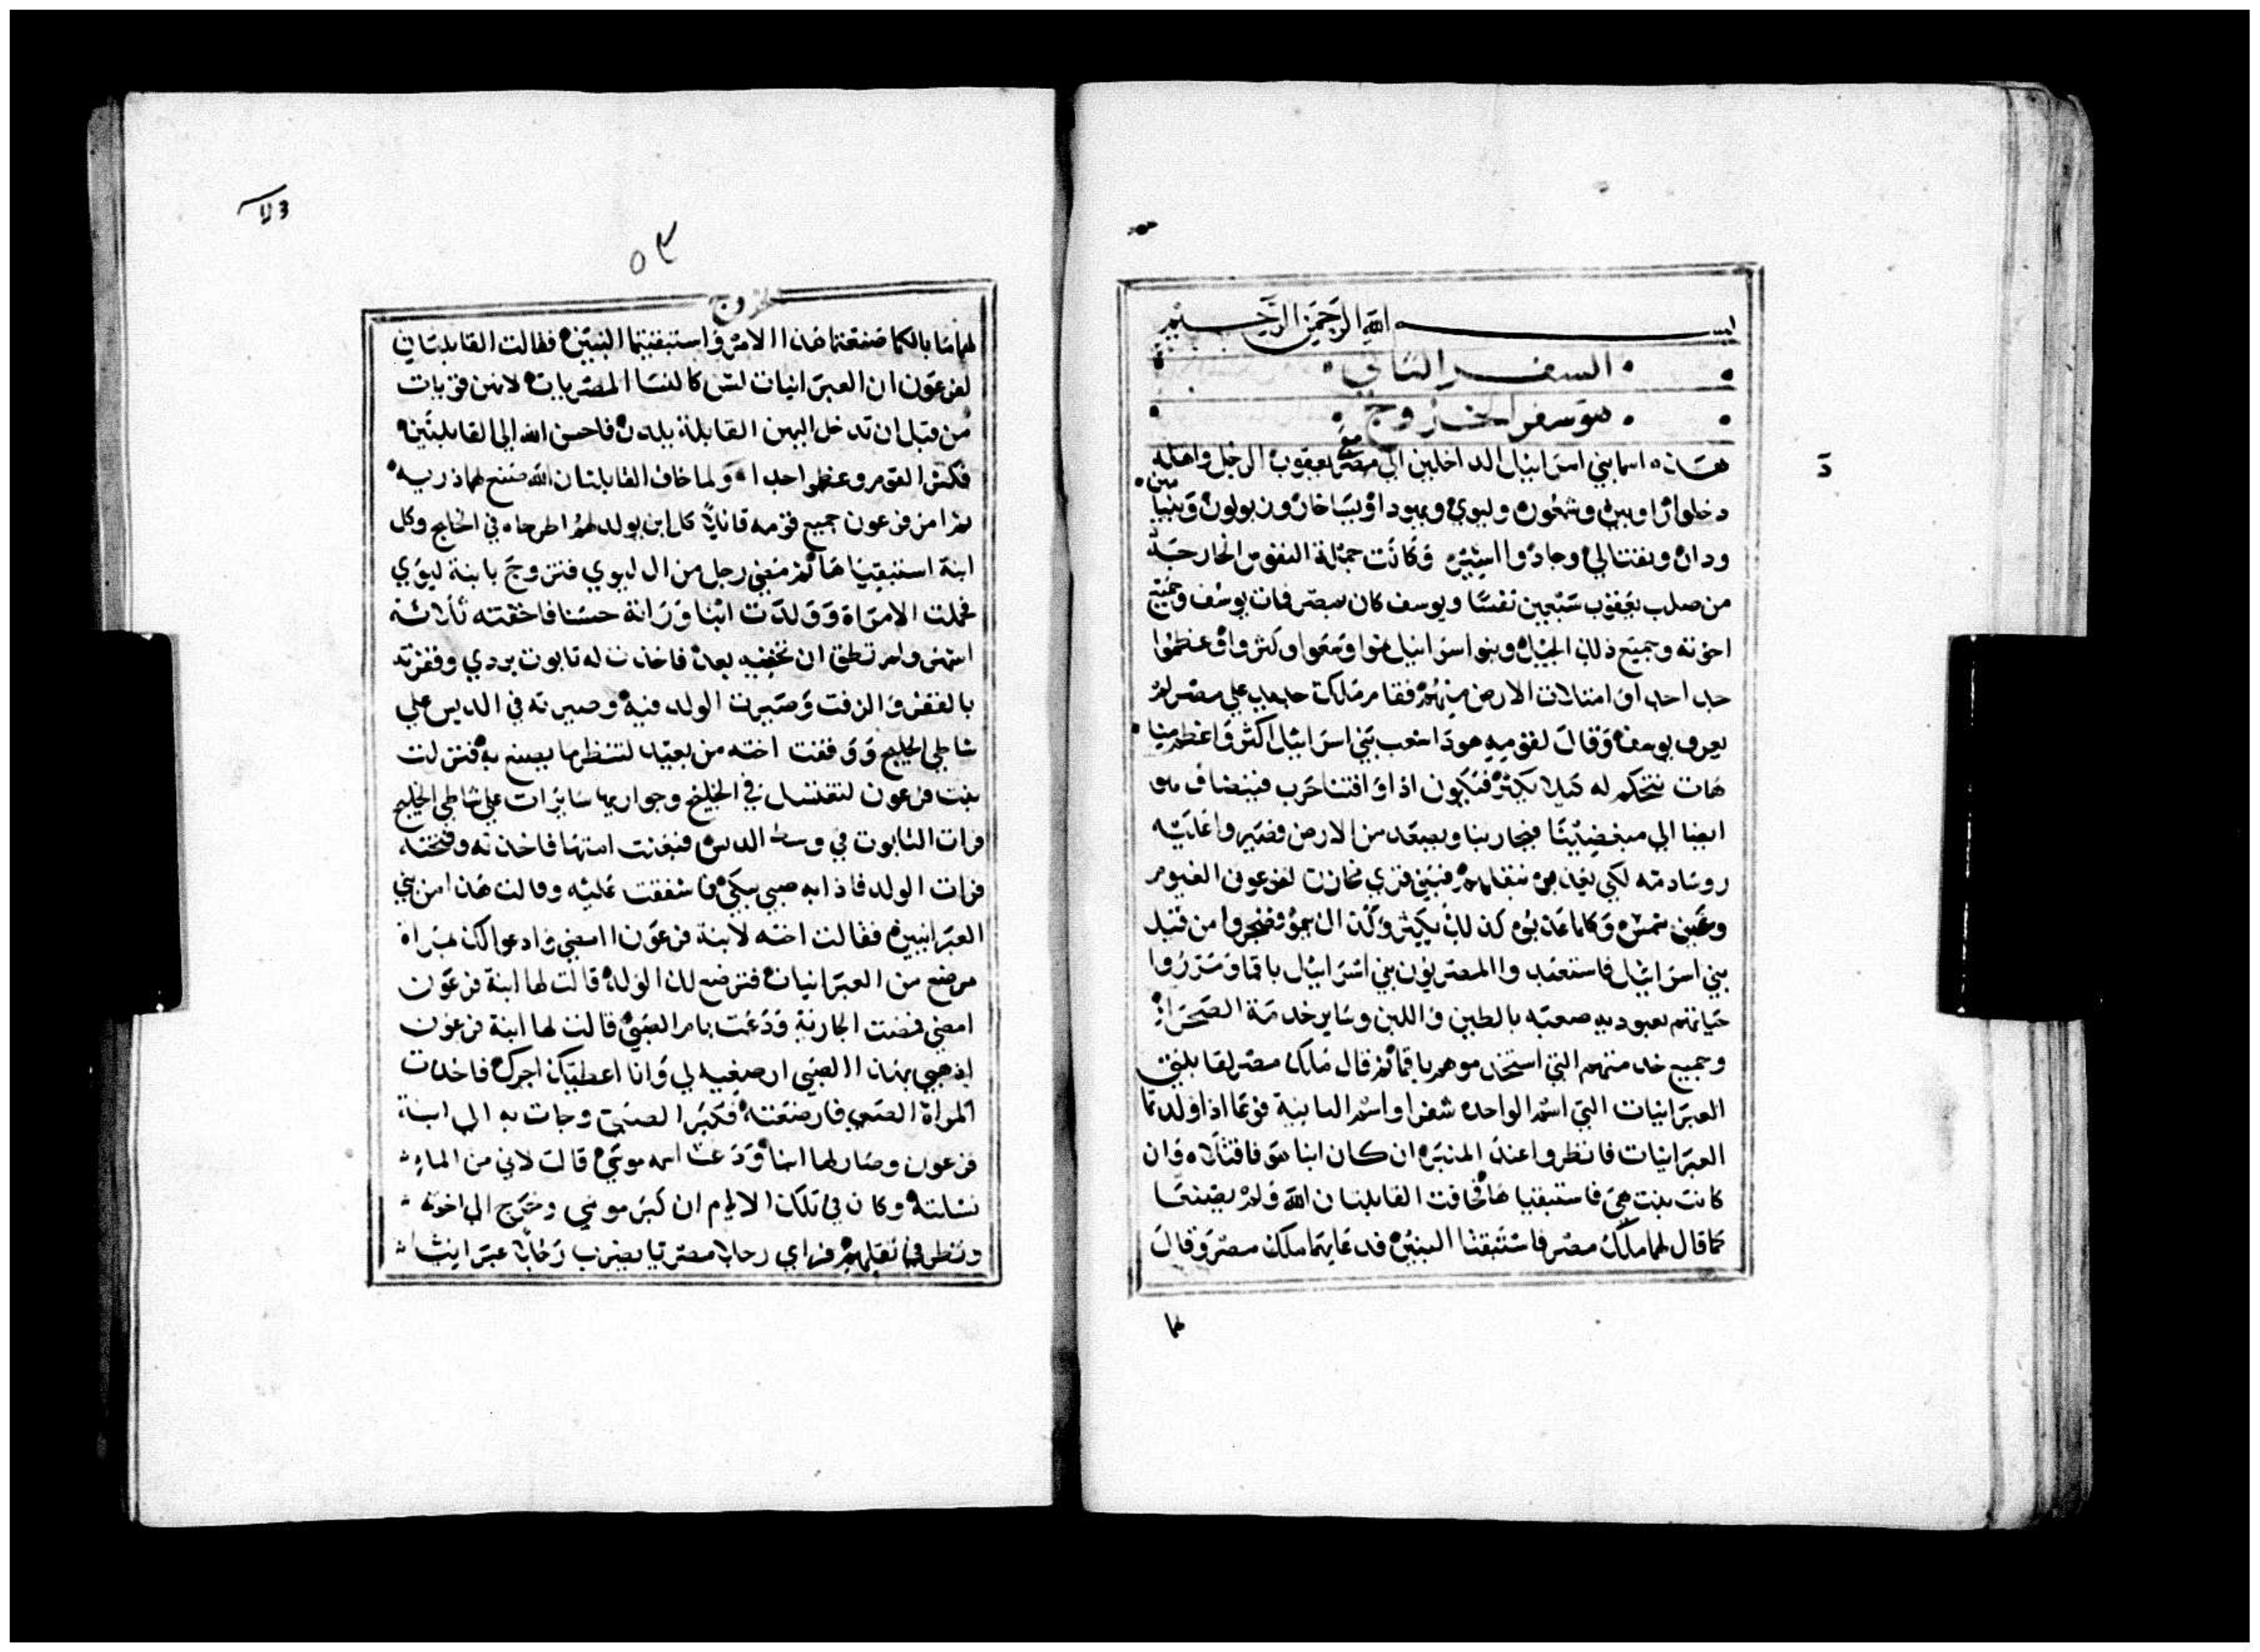 بسم الله الرحمن الرحيم
السفر الثاني
هو سفر الخروج
هذه اسما بني اسرائيل الداخلين الي مصر مع يعقوب الرجل واهله
دخلوا راوبين وشمعون وليوي ويهودا ويساخار وزبولون وبنيامين
ودان ونفتالي وجاد واشير وكانت جملة النفوس الخارجة
من صلب يعقوب سبعين نفسا ويوسف كان بمصر فمات يوسف وجميع
اخوته وجميع ذلك الجيل وبنو اسرائيل نموا وكثروا وعظموا
جدا جدا وامتلات الارض منهم فقام ملك جديد علي مصر لم
يعرف يوسف وقال لقومه هوذا شعب بني اسرائيل اكثر واعظم منا
هات نتحكم له كيلا يكثر فيكون اذا وافتنا حرب فينضاف هو
ايضا الي مبغضينا فيحاربنا ويصعد من الارض فصير وا عليه
روسا لكي بني قري لفرعون الفيوم
وعين شمس وكلما كذلك يكثر وكذا ينمو فضجروا من قبل
بني اسرائيل فاستعبدوا المصريون بني اسرائيل باقما ومرروا
حياتهم بعبودية صعبة بالطين واللبن وساير خدمة الصحرا
وجميع خدمتهم التي استخدموهم باقما ثم قال ملك مصر لقابلتي
العبرانيات التي اسم الواحده شفرا واسم الثانية فوعا اذا ولدتما
العبرانيات فانظروا عند المنبره ان كان ابنا هو فاقتلاه وان
كانت بنت هي فاستبقياها فخافت القابلتان الله ولم يصنعا
كما قال لهما ملك مصر فاستبقتا البنين فدعاهما ملك مصر وقال
لهما
٥٣
خروج
لهما ما بالكما صنعتما هذا الامر واستبقيتما البنين فقالت القابلتان
لفرعون ان العبرانيات لسن كالنسا المصريات لانهن قويات
من قبل ان تدخل اليهن القابلة يلدن فاحسن الله الي القابلتين
فكثر القوم وعظموا جدا ولما خاف القابلتان الله صنع لهما ذريه
ثم امر فرعون جميع قومه قائلا كل ابن يولد لهم اطرحاه في الخليج وكل
ابنة استبقياها ثم مضي رجل من ال ليوي فتزوج بابنة ليوي
فحملت الامراة وولدت ابنا وراته حسنا فاخفته ثلاثة
اشهر ولم تطق ان تخفيه بعد فاخذت له تابوت بردي وقفرته
بالقفر والزفت وصيرت الولد فيه وصيرته في الديس علي
شاطي الخليج ووقفت اخته من بعيد لتنظر ما يصنع به فنزلت
بنت فرعون لتغتسل في الخليج وجواريها سايرات علي شاطي الخليج
فرات التابوت في وسط الديس فبعثت امتها فاخذته وفتحته
فرات الولد فاذا به صبي يبكي فاشفقت عليه وقالت هذا من بني
العبرانيين فقالت اخته لابنة فرعون امضي وادعوا لك امراة
مرضع من العبرانيات فترضع لك الولد قالت لها ابنة فرعون
امضي فمضت الجارية ودعت بام الصبي قالت لها ابنة فرعون
اذهبي بهذا الصبي ارضعيه لي وانا اعطيك اجرك فاخذت
المراة الصبي فارضعته فكبر الصبي وجات به الي ابنة
فرعون وصار لها ابنا ودعت اسمه موسي قالت لاني من الما
نشلته وكان في تلك الايام ان كبر موسي وخرج الي اخوته
ونظر في ثقلهم فراي رجلا مصريا يضرب رجلا عبرانيا